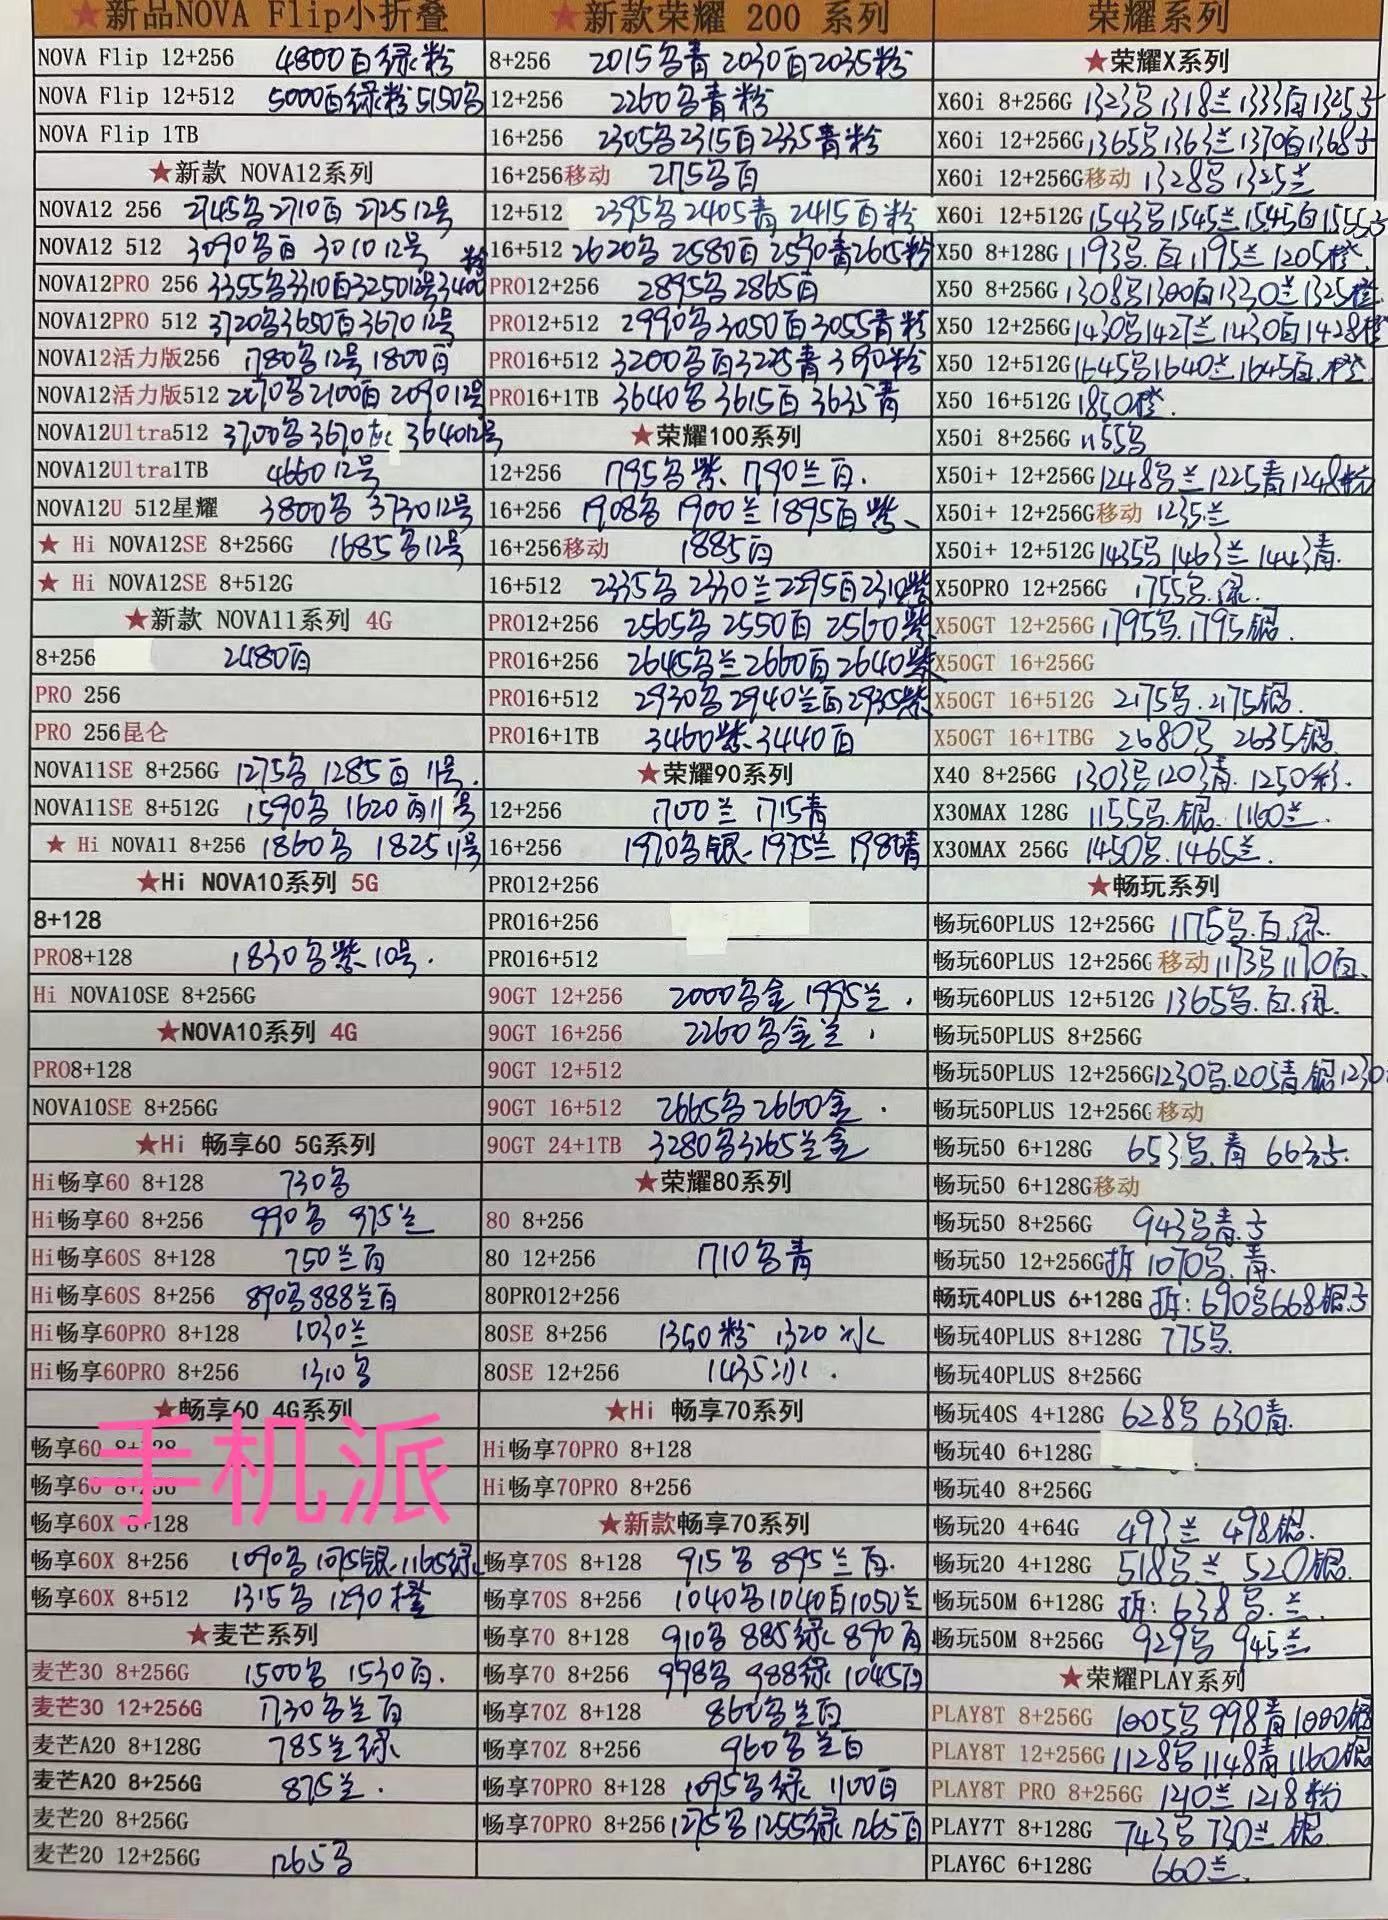 ★新品NOVA Flip小折叠
NOVA Flip 12+256 4800白绿粉
NOVA Flip 12+512 5000白绿粉5150名
NOVA Flip 1TB
★新款 NOVA12系列
NOVA12 256 2745名2710白 2725 12号
NOVA12 512 3090名白 3010 12号
NOVA12PRO 256 3355名3310白325012号3400粉
NOVA12PRO 512 3720名3650白3670 12号
NOVA12活力版256 1780名12号 1800白
NOVA12活力版512 2070名2100白 2090 12号
NOVA12Ultra512 3700名3670灰 3640 12号
NOVA12Ultra1TB 4660 12号
NOVA12U 512星耀 3800名 3730 12号
★ Hi NOVA12SE 8+256G 1685名12号
★ Hi NOVA12SE 8+512G
★新款 NOVA11系列 4G
8+256 2480白
PRO 256
PRO 256昆仑
NOVA11SE 8+256G 1275名 1285白 11号.
NOVA11SE 8+512G 1590名 1620白11号
★ Hi NOVA11 8+256 1860名 1825 11号
★Hi NOVA10系列 5G
8+128
PRO8+128 1830名紫10号.
Hi NOVA10SE 8+256G
★NOVA10系列 4G
PRO8+128
NOVA10SE 8+256G
★Hi 畅享60 5G系列
Hi畅享60 8+128 730名
Hi畅享60 8+256 990名 975兰
Hi畅享60S 8+128 750兰白
Hi畅享60S 8+256 890名888兰白
Hi畅享60PRO 8+128 1030兰
Hi畅享60PRO 8+256 1310名
★畅享60 4G系列
手机派
畅享60 8+128
畅享60 8+256
畅享60X 8+128
畅享60X 8+256 1090名1075银.1165绿
畅享60X 8+512 1315名 1290橙
★麦芒系列
麦芒30 8+256G 1500名 1530白.
麦芒30 12+256G 1730名兰白
麦芒A20 8+128G 785兰绿
麦芒A20 8+256G 875兰.
麦芒20 8+256G
麦芒20 12+256G 1265名
★新款荣耀 200 系列
8+256 2015名青2030白2035粉
12+256 2260名青粉
16+256 2305名2315白2335青粉
16+256移动 2175名白
12+512 2395名2405青2415白粉
16+512 2620名2580白2590青2615粉
PRO12+256 2895名2865白
PRO12+512 2990名3050白3055青粉
PRO16+512 3200名白3225青3190粉
PRO16+1TB 3640名3615白3635青
★荣耀100系列
12+256 1795名紫 1790兰白.
16+256 1908名 1900兰1895白紫
16+256移动 1885白
16+512 2335名2330兰2295白2310紫
PRO12+256 2565名2550白 2560紫
PRO16+256 2645名兰2660白2640紫
PRO16+512 2930名2940兰白2935紫
PRO16+1TB 3460紫.3440白
★荣耀90系列
12+256 1700兰 1715青
16+256 1970名银.1975兰1980青
PRO12+256
PRO16+256
PRO16+512
90GT 12+256 2000名金 1995兰.
90GT 16+256 2260名金兰.
90GT 12+512
90GT 16+512 2665名2660金.
90GT 24+1TB 3280名3265兰金
★荣耀80系列
80 8+256
80 12+256 1710名青
80PRO12+256
80SE 8+256 1350粉 1320冰
80SE 12+256 1435冰.
★Hi 畅享70系列
Hi畅享70PRO 8+128
Hi畅享70PRO 8+256
★新款畅享70系列
畅享70S 8+128 915名 895兰白.
畅享70S 8+256 1040名1040白1050兰
畅享70 8+128 910名885绿890白
畅享70 8+256 998名 988绿1045白
畅享70Z 8+128 860名兰白
畅享70Z 8+256 960名兰白
畅享70PRO 8+128 1095名绿 1100白
畅享70PRO 8+256 1275名1255绿1265白
荣耀系列
★荣耀X系列
X60i 8+256G 1323名1318兰1333白1325
X60i 12+256G 1365名1363兰1370白1368
X60i 12+256G移动 1328名1325兰
X60i 12+512G 1543名1545兰1545白1555
X50 8+128G 1193名.白1195兰1205橙.
X50 8+256G 1308名1300白1330兰1325橙
X50 12+256G 1430名1427兰1430白1428橙
X50 12+512G 1645名1640兰1645白.橙
X50 16+512G 1850橙.
X50i 8+256G 1155名
X50i+ 12+256G 1248名兰1225青1248粉
X50i+ 12+256G移动 1235兰
X50i+ 12+512G 1435名1463兰1443青.
X50PRO 12+256G 1755名.绿.
X50GT 12+256G 1795名.1795银.
X50GT 16+256G
X50GT 16+512G 2175名.2175银.
X50GT 16+1TBG 2680名 2635银.
X40 8+256G 1303名1203青.1250彩.
X30MAX 128G 1155名.银.1160兰.
X30MAX 256G 1450名.1465兰.
★畅玩系列
畅玩60PLUS 12+256G 1175名.白.绿.
畅玩60PLUS 12+256G 移动 1173名1170白.
畅玩60PLUS 12+512G 1365名.白.绿.
畅玩50PLUS 8+256G
畅玩50PLUS 12+256G 1230名.1205青银1230
畅玩50PLUS 12+256G 移动
畅玩50 6+128G 653名.青 663
畅玩50 6+128G移动
畅玩50 8+256G 943名青
畅玩50 12+256G 拆1070名.青.
畅玩40PLUS 6+128G 拆:690名668银
畅玩40PLUS 8+128G 775名.
畅玩40PLUS 8+256G
畅玩40S 4+128G 628名 630青.
畅玩40 6+128G
畅玩40 8+256G
畅玩20 4+64G 493兰 498银.
畅玩20 4+128G 518名兰 520银.
畅玩50M 6+128G 拆:638名.兰.
畅玩50M 8+256G 929名 945兰
★荣耀PLAY系列
PLAY8T 8+256G 1005名998青1000银
PLAY8T 12+256G 1128名1148青1160银
PLAY8T PRO 8+256G 1210兰1218粉
PLAY7T 8+128G 743名730兰银.
PLAY6C 6+128G 660兰.